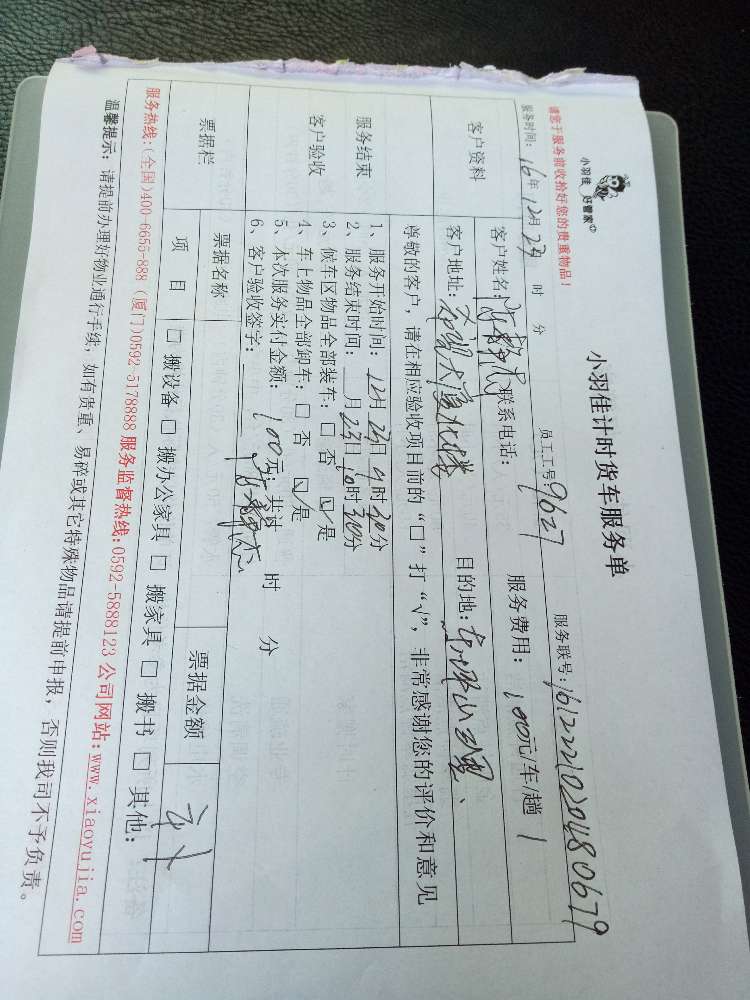 小羽佳 好管家
小羽佳计时货车服务单
请您于服务前收拾好您的贵重物品！
员工工号：9627 服务联号：161222102048 0679
服务时间：16年12月23 时 分
客户资料
客户姓名： 联系电话： 服务费用：100元/车/趟
客户地址： 目的地：
尊敬的客户，请在相应验收项目前的“□”打“√”，非常感谢您的评价和意见
服务结束
客户验收
1、服务开始时间：12月23日9时30分
2、服务结束时间：__月23日10时30分
3、候车区物品全部装车：□ 否 ☑ 是
4、车上物品全部卸车：□ 否 ☑ 是
5、本次服务实付金额：100元；共计 时 分
6、客户验收签字：
票据栏
票据名称 票据金额
项 目 □ 搬设备 □ 搬办公家具 □ 搬家具 □ 搬书 □ 其他：
服务热线：(全国)400-6655-888 (厦门)0592-5178888 服务监督热线：0592-5888123 公司网站：www.xiaoyujia.com
温馨提示：请提前办理好物业通行手续，如有贵重、易碎或其它特殊物品请提前申报，否则我司不予负责。